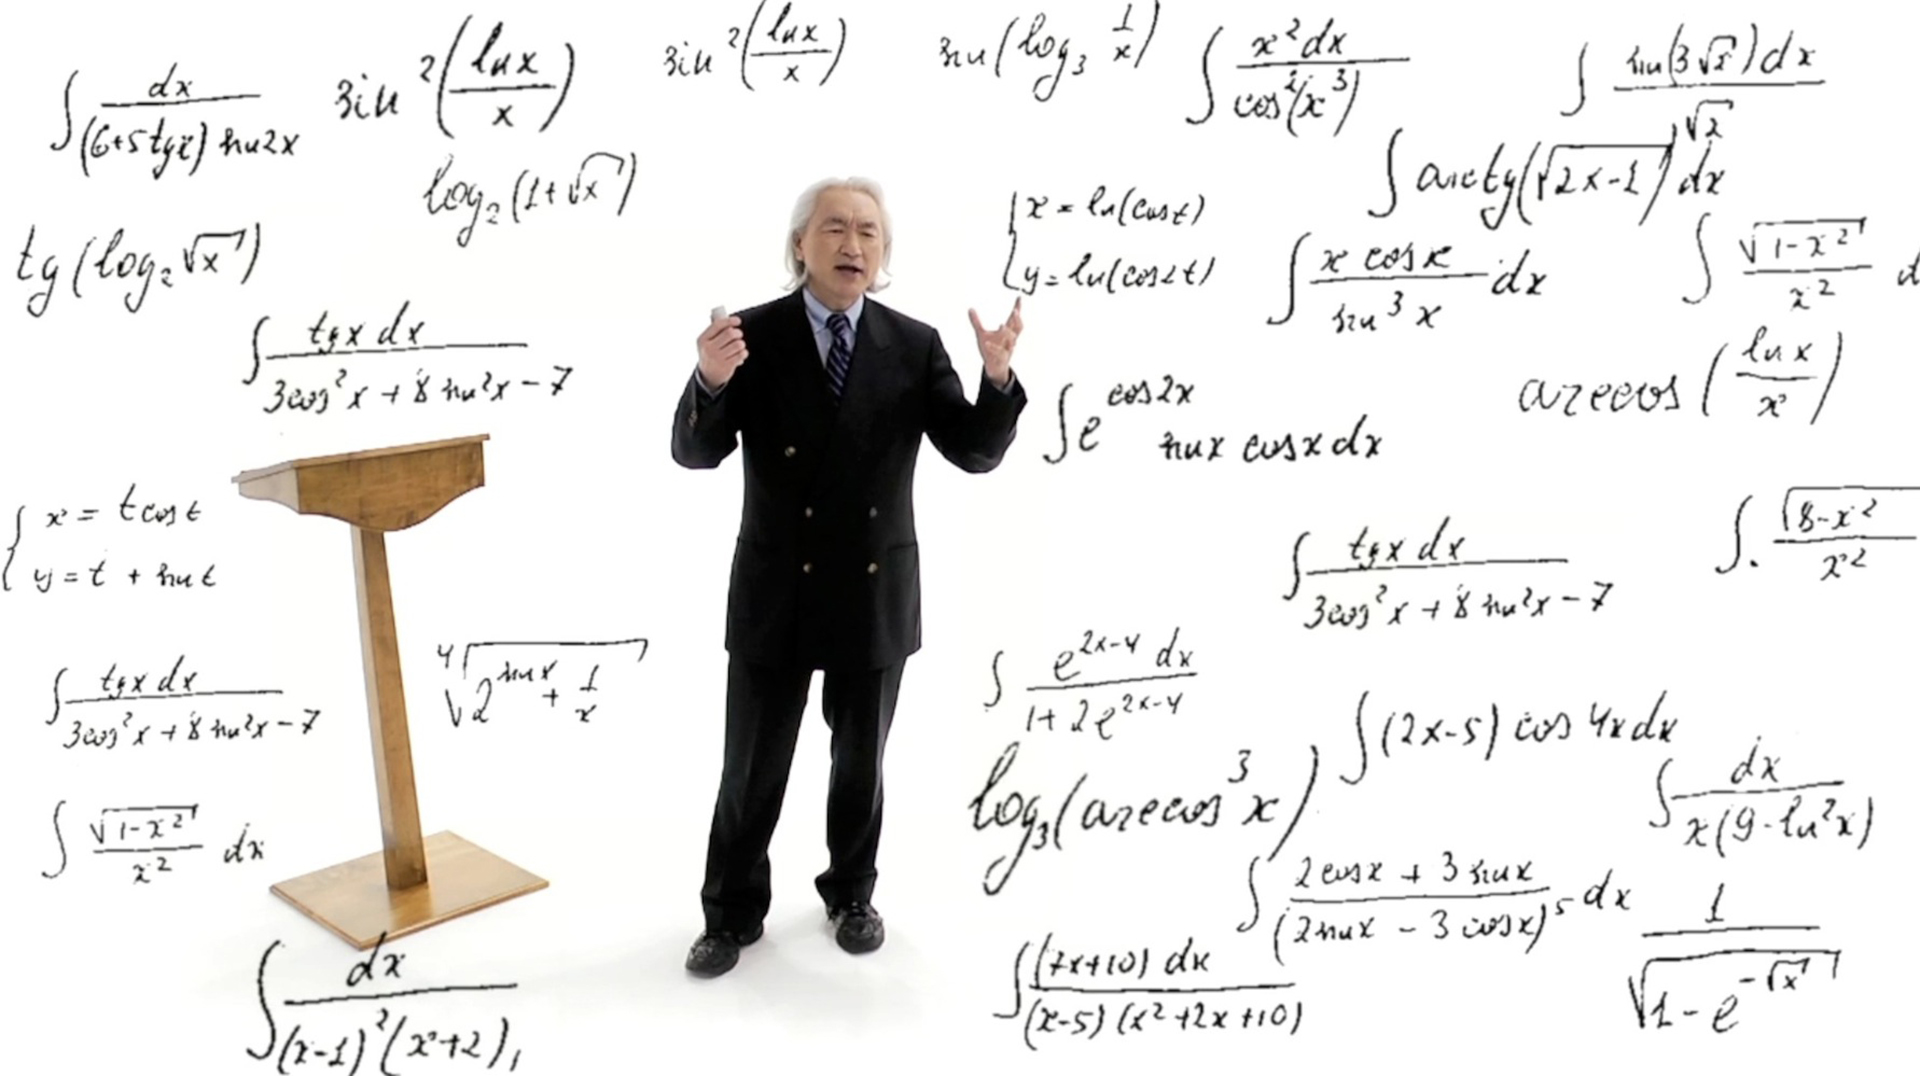 ∫ dx / (6+5tgx) sin2x
sin²(lnx / x)
sin²(lnx / x)
sin(log₃ 1/x)
∫ x²dx / cos²(x³)
∫ sin(3√x)dx / √x
log₂(1+√x)
∫ arctg(√2x-1) dx
tg(log₂√x)
{ x = ln(cost)
y = ln(cos2t)
∫ x cosx / sin³x dx
∫ √1-x² / x² d
∫ tgx dx / 3cos²x + 8sin²x - 7
∫ e^cos2x sinx cosx dx
arccos(lnx / x)
{ x = tcost
y = t + sint
∫ tgx dx / 3cos²x + 8sin²x - 7
∫ √8-x² / x²
∫ tgx dx / 3cos²x + 8sin²x - 7
⁴√2^sinx + 1/x
∫ e^2x-4 dx / 1+2e^2x-4
∫(2x-5) cos4xdx
log₃(arccos³x)
∫ dx / x(9-ln²x)
∫ √1-x² / x² dx
∫ 2cosx + 3sinx / (2sinx - 3cosx)⁵ dx
1 / √1-e^-√x
∫ dx / (x-1)²(x²+2),
∫ (7x+10) dx / (x-5)(x²+2x+10)